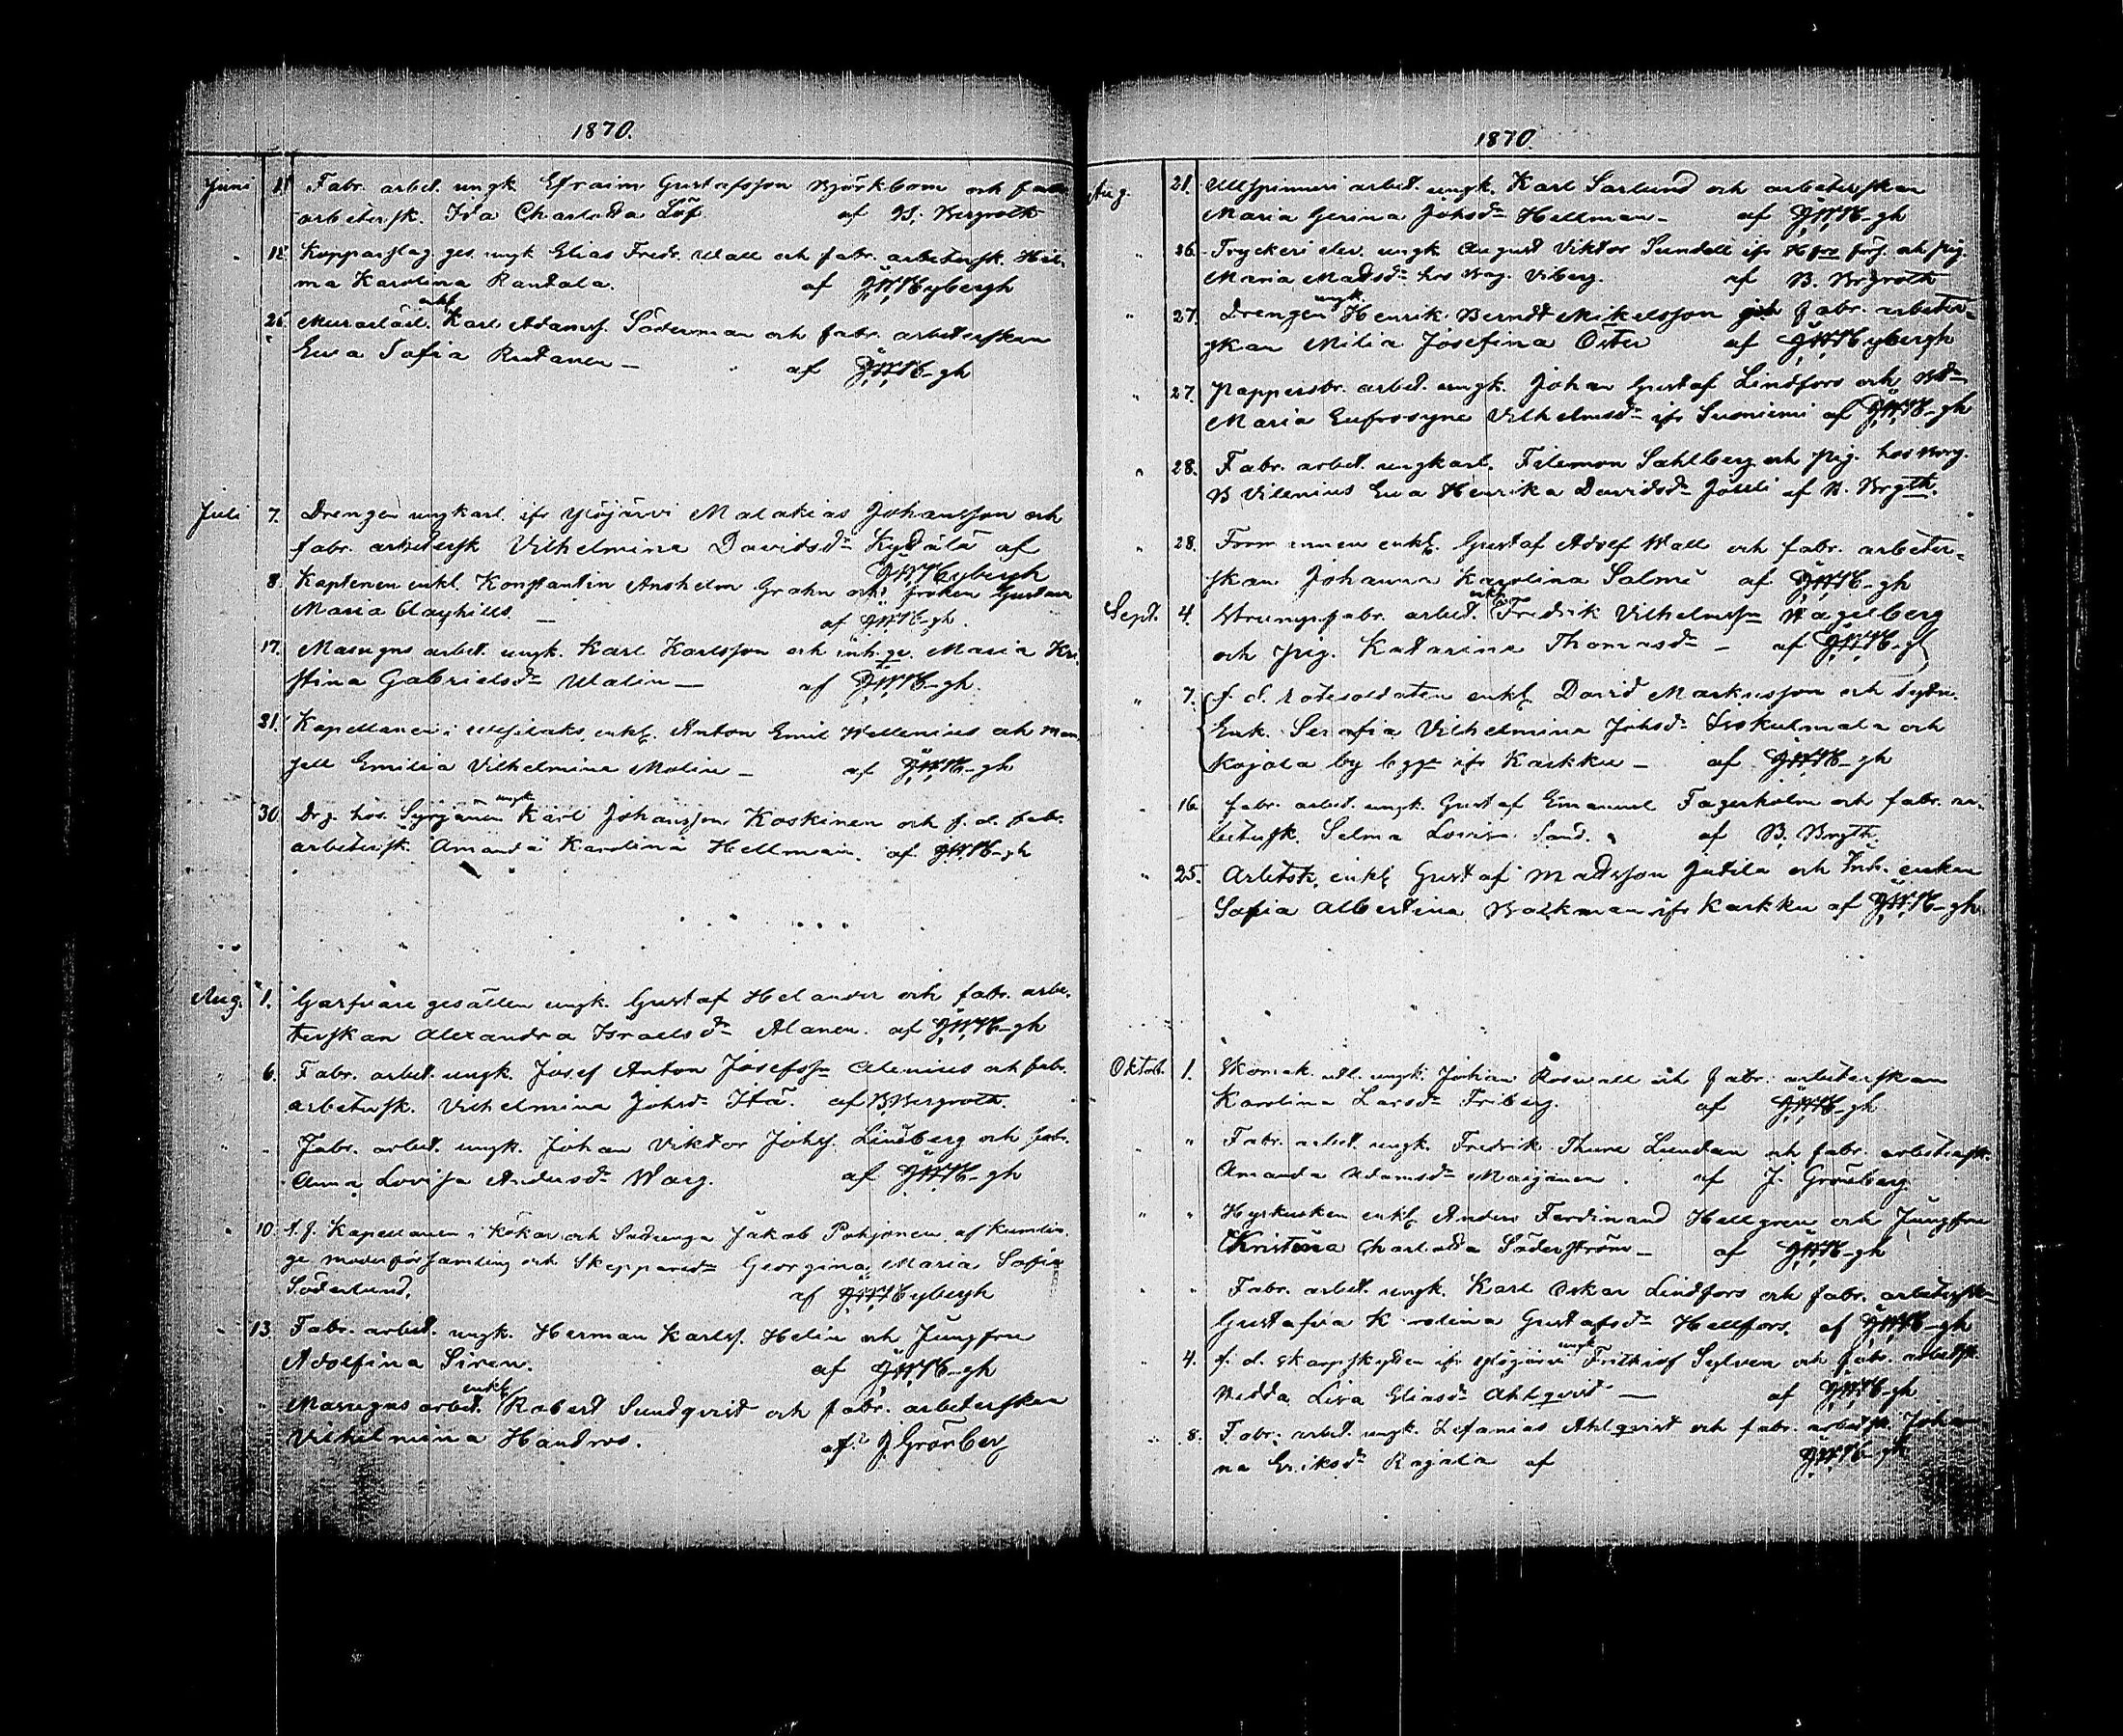 1870.
Juni 11 Fabr. arbet. ungk. Efraim Gustafsson Björkbom och fabr.
arbetersk. Ida Charlotta Löf af B. Bergroth
" 12 Kopparslag. ges. ungk Elias Fredr. Wall och fabr. arbetersk. Hil-
ma Karolina Rantala. af G.W. Hybergh
" 26 Murarlärl. enkl. Karl Adamsf. Söderman och fabr. arbeterskan
Eva Sofia Rutanen — af G.W.H-gh
Juli 7. Drengen ungkarl. ifr Ylöjärvi Malakias Johansson och
fabr. arbetersk Vilhelmina Davidsdr Kydälä af
G.W. Hybergh
8. Kaptenen enkl. Konstantin Anshelm Grahn och fröken Gustava
Maria Clayhills — af G.W.H-gh.
17. Masugns arbet. ungk. Karl Karlsson och inh. Maria Kri-
stina Gabrielsdr Walin — af G.W.H-gh.
21. Kapellanen i enkl. Anton Emil Hellenius och mam-
sell Emilia Vilhelmina Molin — af G.W.H-gh
30. Drg. hos Syrjänen ungk. Karl Johansson Koskinen och f.d. fabr.
arbetersk. Amanda Karolina Hellman. af G.W.H-gh
Aug. 1. Garfvare gesällen ungk. Gustaf Helander och fabr. arbe-
terskan Alexandra Israelsdr Alanen. af G.W.H-gh
" 6. Fabr. arbet. ungk. Josef Anton Josefssn Alenius och fabr.
arbetersk. Vilhelmina Johsdr Itä. af B Bergroth.
" " Fabr. arbet. ungk. Johan Viktor Johsf. Lineberg och fabr.
Anna Lovisa Andersdr Warg. af G.W.H-gh
" 10. Kapellanen i Kökar och Sottunga Jakob Pohjonen af Kumlin-
ge moderförsamling och Skepparedr Georgina Maria Sofia
Söderlund. af G.W. Hybergh
" 13. Fabr. arbet. ungk. Herman Karlsf. Helin och Jungfru
Adolfina Siren. af G.W.H-gh
" " Masugns arbet. enkl. Robert Sundqvist och fabr. arbeterskan
Vilhelmina Handros. af J Grönberg
1870.
Aug. 21. Ullspinneri arbet. ungk. Karl Sarlund och arbeterskan
Maria Gerina Johsdr Hellman — af G.W.H-gh
" 26. Tryckeri elev. ungk August Viktor Sundell ifr förs. och pig.
Maria Matsdr hos Viberg. af B. Brgroth
" 27. Drengen ungk. Henrik Berndt Mikelsson och fabr. arbeter-
skan Milia Josefina Öster af G.W. Hybergh
" 27. Pappersbr. arbet. ungk. Johan Gustaf Lindfors och Bdr
Maria Eufrosyne Vilhelmsdr ifr Suoniemi af G.W.H-gh
" 28. Fabr. arbet. ungkarl. Filemon Sahlberg och pig. hos Borg.
B Villenius Eva Henrika Davidsdr Jöseli af B. Brgth.
" 28. Formannen enkl. Gustaf Adolf Wall och fabr. arbeter-
skan Johanna Karolina Salmé af G.W.H-gh
Sept. 4. Strumpfabr. arbet. enkl. Fredrik Vilhelmssn Nagelberg
och pig. Katarina Thomasdr — af G.W.H-gh
" 7. f.d. rotesoldaten enkl. David Markusson och Sydn.
Enk. Serafia Vilhelmina Johsdr och
Kojola by ifr Karkku — af G.W.H-gh
" 16. fabr. arbet. ungk. Gustaf Emanuel Fagerholm och fabr. ar-
betersk. Selma Lovisa Sand. af B. Brgth.
" 25. Arbetsk. enkl. Gustaf Mattsson Jutila och Inh. enkan
Sofia Albertina Backman ifr Karkku af G.W.H-gh
Oktob. 1. Skomak. ungk. Johan Roswall och fabr. arbeterskan
Karolina Larsdr Friberg. af G.W.H-gh
" " Fabr. arbet. ungk. Fredrik Thure Lundan och fabr. arbetersk.
Amanda Adamsdr Marjanen. af J. Grönberg
" " Hyrkusken enkl. Anders Ferdinand Hellgren och Jungfru
Kristina Charlotta Söderström — af G.W.H-gh
" " Fabr. arbet. ungk. Karl Oskar Lindfors och fabr. arbetersk.
Gustafva Karolina Gustafsdr Hellfors. af G.W.H-gh
" 4. f.d. skarpskytten ifr Ylöjärvi ungk Frithiof Sylven och fabr. arbetsk.
Hedda Lisa Eliasdr Ahlqvist — af G.W.H-gh
" 8. Fabr. arbet. ungk. Zefanias Ahlqvist och fabr. arbetsk. Johan-
na Eriksdr Rajala af G.W.H-gh